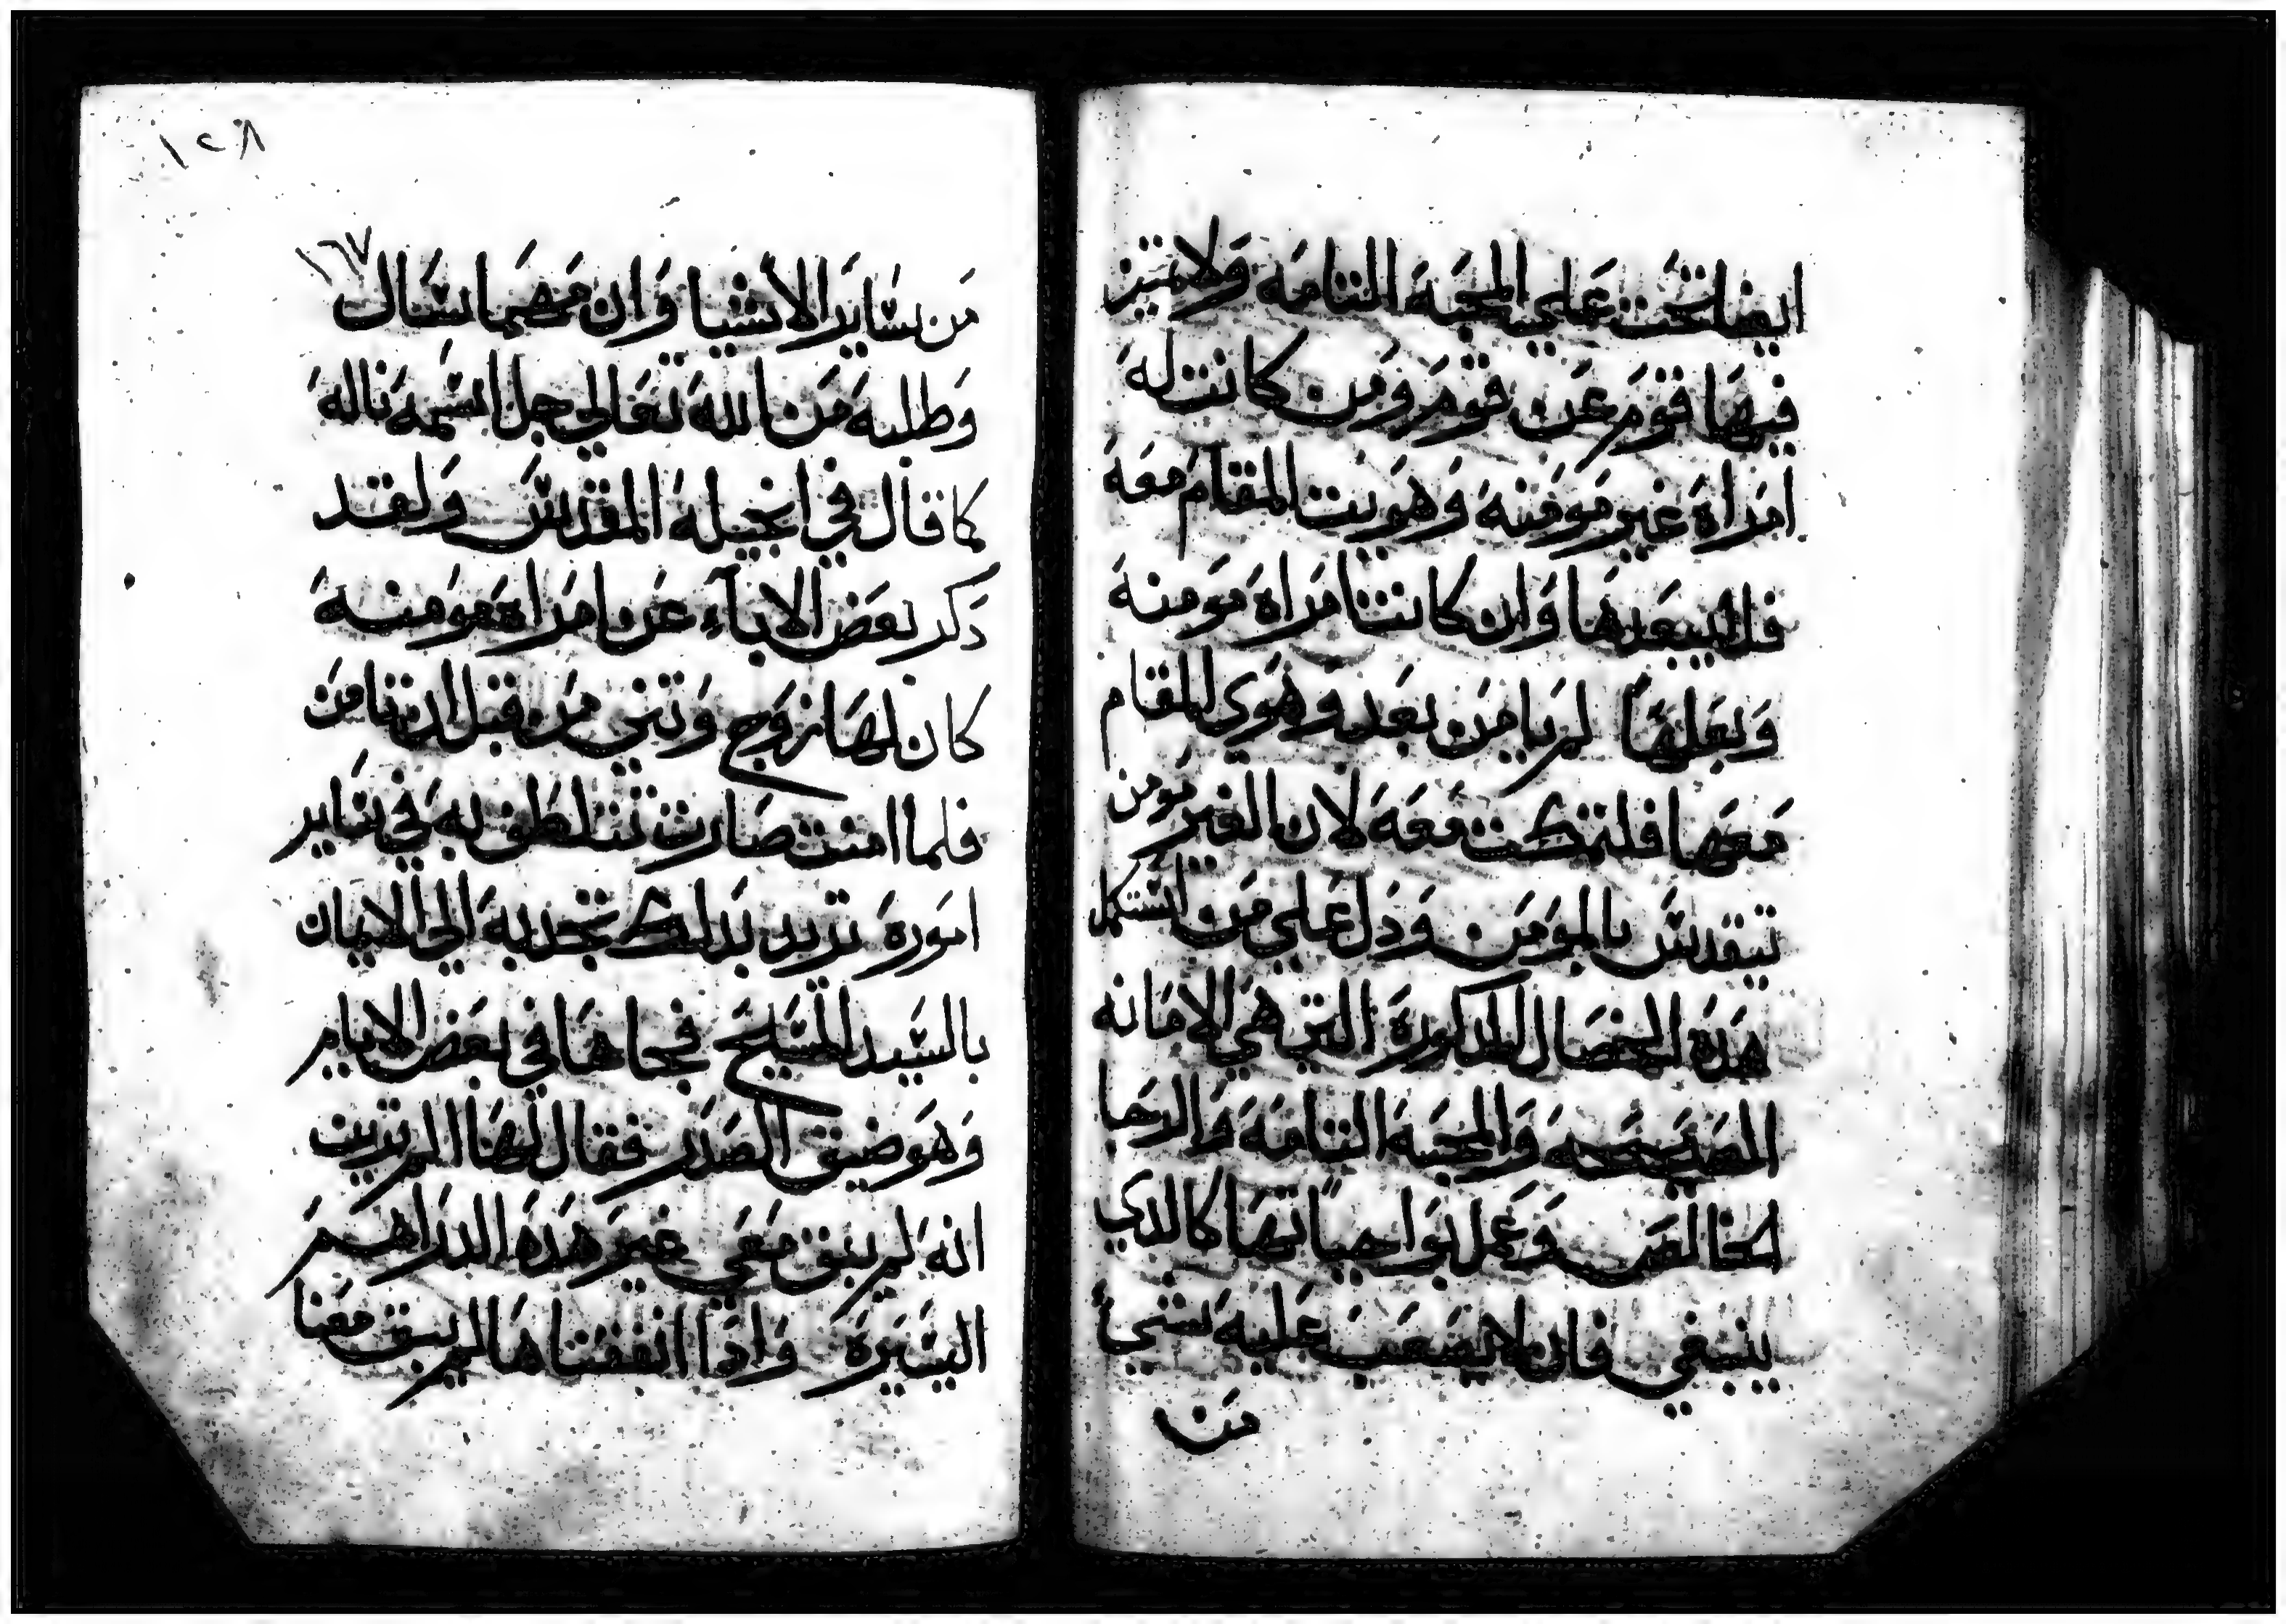 ايضا تحت علي المحبة التامة ولا تميز
فيها قوم عن قوم ومن كانت له
امراة غير مومنة وهويت المقام معه
فلا يبعدها وان كانت امراة مومنة
وبعلها لم يامن بعد وهوي المقام
معها فلتمكث معه لان الغير مومن
يتقدس بالمومن ودل علي من استكمل
هذه الخصال المذكورة التي هي الامانه
الصحيحه والمحبة التامة والرجا
الخالص وعمل بواجباتها كالذي
ينبغي فان لا يصعب عليه شي
من
١٢٨
١٦٧
من ساير الاشيا وان مهما سال
وطلبة من الله تعالي جل اسمه ناله
كما قال في انجيله المقدس ولقد
دكر بعض الاباء عن امراة مومنة
كان لها زوج وتني من قبل ان تامن
فلما امنت صارت تتلطف به في ساير
اموره تريد بدلك تجدبه الي الايمان
بالسيد المسيح فجاها في بعض الايام
وهو ضيق الصدر فقال لها الم ترين
انه لم يبق معي غير هذه الدراهم
اليسيرة واذا انفقناها لم يبق معنا